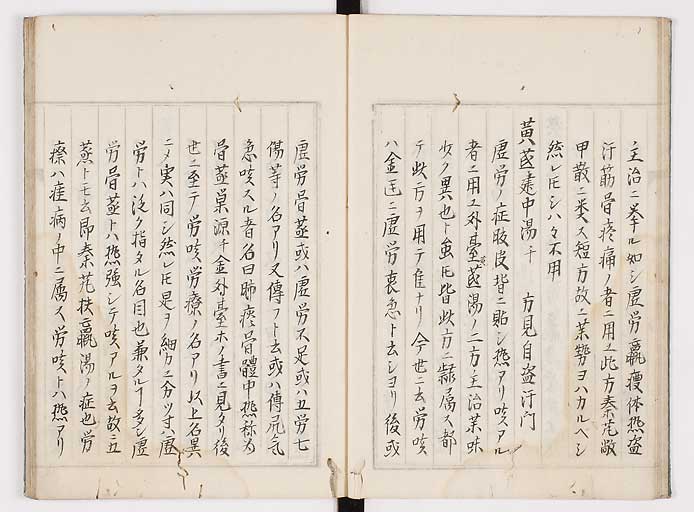 主治ニ挙ル如シ虚労羸痩体熱盗
汗筋骨疼痛ノ者ニ用ユ此方秦艽鼈
甲散ニ類ス短方故ニ業勢ヨハカルヘシ
然レ𪜈シハ々不用
黄芪建中湯 千 方見自盗汗門
虚労ノ症腹皮背ニ貼シ熱アリ咳アル
者ニ用ユ外臺黄芪湯ノ二方主治薬味
少ク異也ト虽𪜈皆此方ニ隷属ス都
テ此方ヲ用テ隹ナリ今世ニ云労咳
ハ金匱ニ虚労裏急ト云シヨリ後或
虚労骨蒸或ハ虚労不足或ハ五労七
傷等ノ名アリ又傳フト云或ハ傳尸気
急咳スル者名曰肺痿骨體中熱称為
骨蒸巣源千金外臺ホノ書ニ見タリ後
世ニ至テ労咳労瘵ノ名アリ以上名異
ニメ実ハ同シ然レ𪜈是ヲ細ニ分ツ寸ハ虚
労トハ泛ク指タル名目也兼タルコ多シ虚
労骨蒸トハ熱強シテ咳アルヲ云故ニ五
蒸トモ云即秦艽扶羸湯ノ症也労
瘵ハ疰病ノ中ニ属ス労咳トハ熱アリ